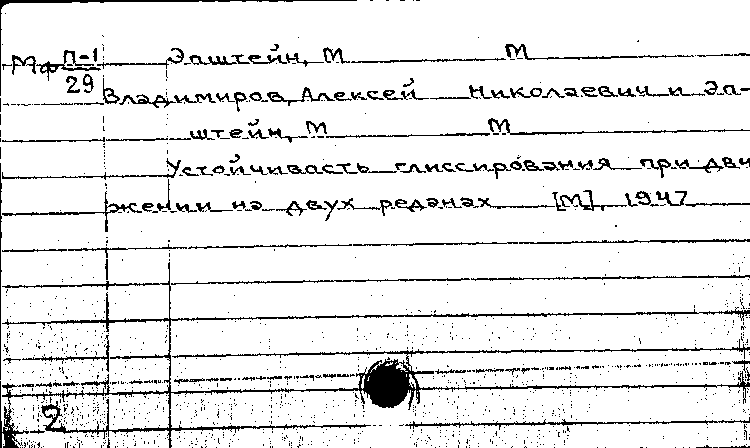 Мф П-1/29 Эпштейн, М М
Владимиров, Алексей Николаевич и Эп-
штейн, М М
Устойчивасть глиссирования при дви
жении на двух реданах [М], 1947
2